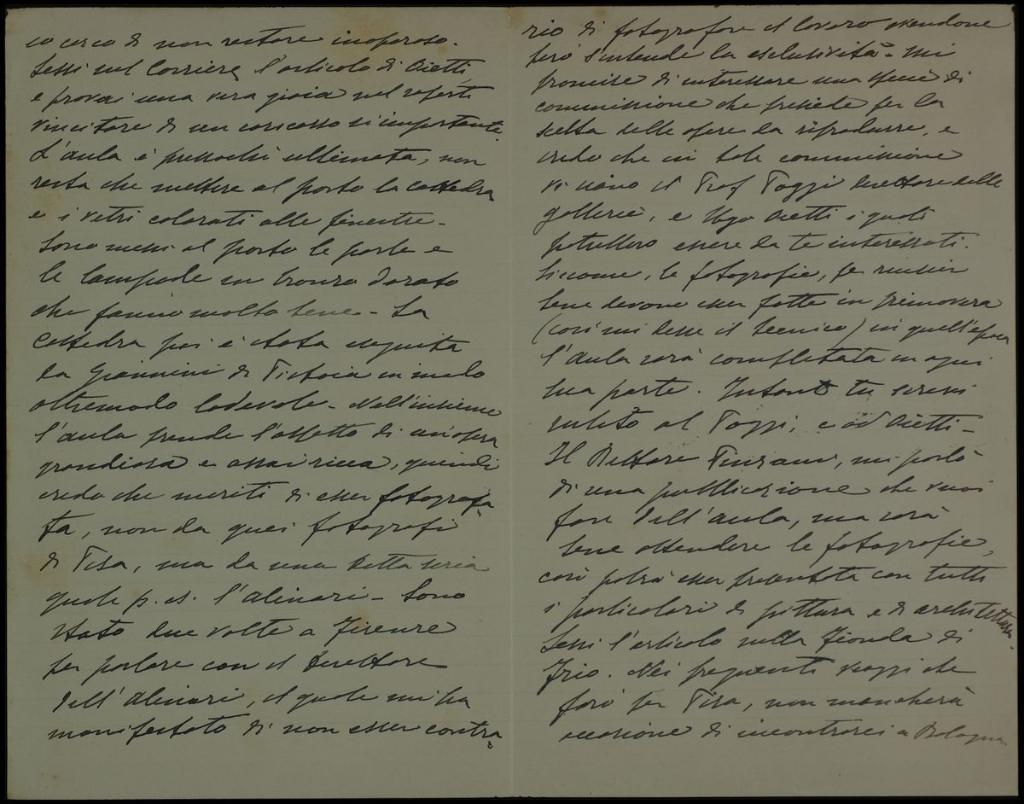 co cerco di non restare inoperoso.
Lessi sul Corriere, l'articolo di Oietti,
e provai una vera gioia nel saperti
vincitore di un concorso sì importante.
L'aula è pressochè ultimata, non
resta che mettere al posto la cattedra
e i vetri colorati alle finestre.
Sono messi al posto le porte e
le lampade in bronzo dorato
che fanno molto bene - La
cattedra poi è stata eseguita
da Giannini di Pistoia in modo
oltremodo lodevole - Nell'insieme
l'aula prende l'aspetto di un'opera
grandiosa e assai ricca, quindi
credo che meriti di esser fotografa-
ta, non da quei fotografi
di Pisa, ma da una ditta seria
quale p. es. l'Alinari - Sono
stato due volte a Firenze
per parlare con il direttore
dell'Alinari, il quale mi ha
manifestato di non esser contra-
rio di fotografare il lavoro avendone
però s'intende la esclusività - mi
promise di interessare una specie di
commissione che presiede per la
scelta delle opere da riprodurre, e
credo che in tale commissione
vi siano il Prof Poggi direttore delle
gallerie, e Ugo Oietti i quali
potrebbero essere da te interessati.
Siccome, le fotografie, per riuscir
bene devono esser fatte in primavera
(così mi disse il tecnico) in quell'epoca
l'aula sarà completata in ogni
sua parte. Intanto tu scrivi
subito al Poggi, e ad Oietti -
Il Rettore mi parlò
di una pubblicazione che vuoi
fare dell'aula, ma sarà
bene attendere le fotografie,
così potrà esser presentata con tutti
i particolari di pittura e di architettura.
Lessi l'articolo sulla di
Nei frequenti viaggi che
farò per Pisa, non mancherà
occasione di incontrarci a Bologna